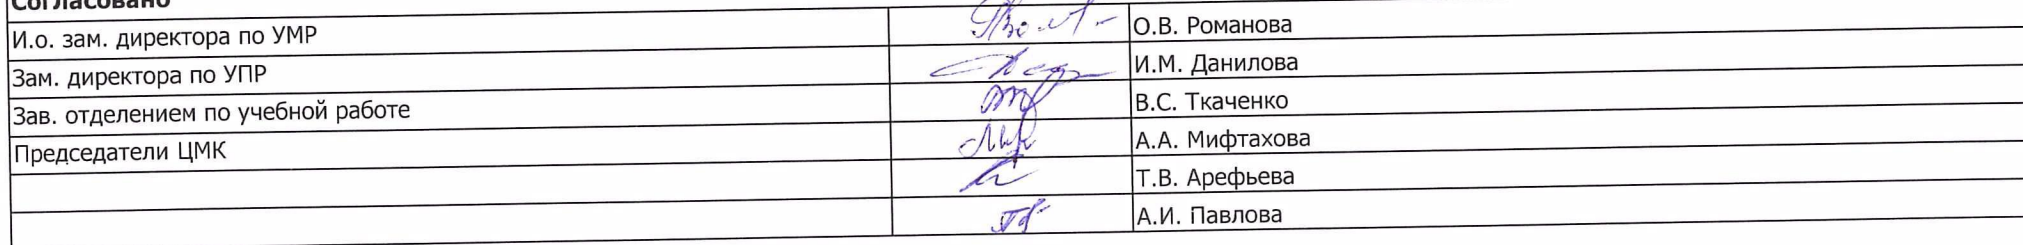 Согласовано
И.о. зам. директора по УМР О.В. Романова
Зам. директора по УПР И.М. Данилова
Зав. отделением по учебной работе В.С. Ткаченко
Председатели ЦМК А.А. Мифтахова
Т.В. Арефьева
А.И. Павлова